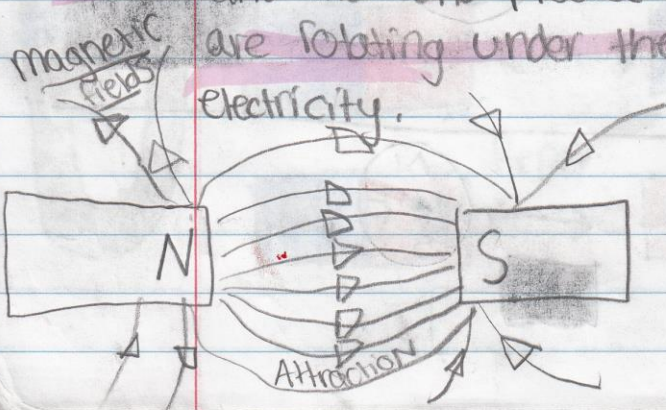 magnetic
fields
are rotating under the
electricity.
N
S
Attraction